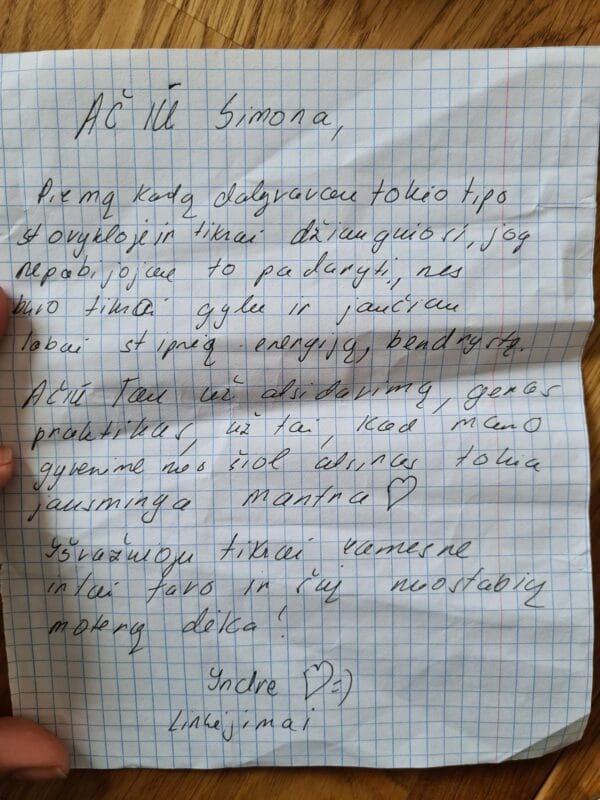 AČIŪ Simona,
Pirmą kartą dalyvavau tokio tipo
stovykloje ir tikrai džiaugiuosi, jog
nepabijojau to padaryti, nes
buvo tikrai gylu ir jaučiau
labai stiprią energiją, bendrystę.
AČIŪ Tau už atsidavimą, geras
praktikas, už tai, kad mano
gyvenime nuo šiol atsiras tokia
jausminga mantra ♡
Išvažiuoju tikrai ramesnė
ir tai tavo ir šių nuostabių
moterų dėka!
Indrė ♡ =)
Linkėjimai